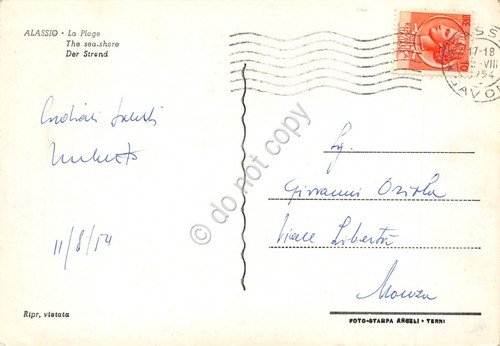 ALASSIO - La Plage
The sea-shore
Der Strend
17-18
VIII
1954
Cordiali saluti
Umberto
11/8/54
do not copy
Sig.
Giovanni
Viale Libertà
Monza
Ripr. vietata
FOTO-STAMPA ANGELI - TERNI